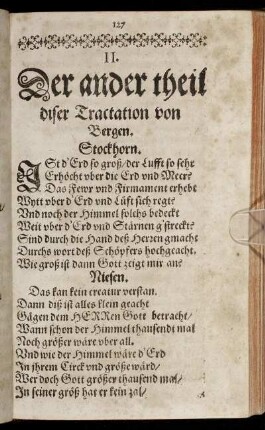 127
II.
Der ander theil
diser Tractation von
Bergen.
Stockhorn.
ISt d'Erd so groß/ der Lufft so sehr
Erhöcht vber die Erd vnd Meer?
Das Fewr vnd Firmament erhebt
Wytt vber d'Erd vnd Lüfft sich regt?
Vnd noch der Himmel solchs bedeckt
Weit vber d'Erd vnd Stärnen g'streckt?
Sind durch die Hand deß Herren gmacht
Durchs wort deß Schöpfers hochgeacht.
Wie groß ist dann Gott zeigt mir an?
Niesen.
Das kan kein creatur verstan.
Dann diß ist alles klein geacht
Gägen dem HERRen Gott betracht/
Wann schon der Himmel thausendt mal
Noch größer wäre vber all.
Vnd wie der Himmel wäre d'Erd
In jhrem Circk vnd größe wärd/
Wer doch Gott größer thausend mal/
In seiner größ hat er kein zal/